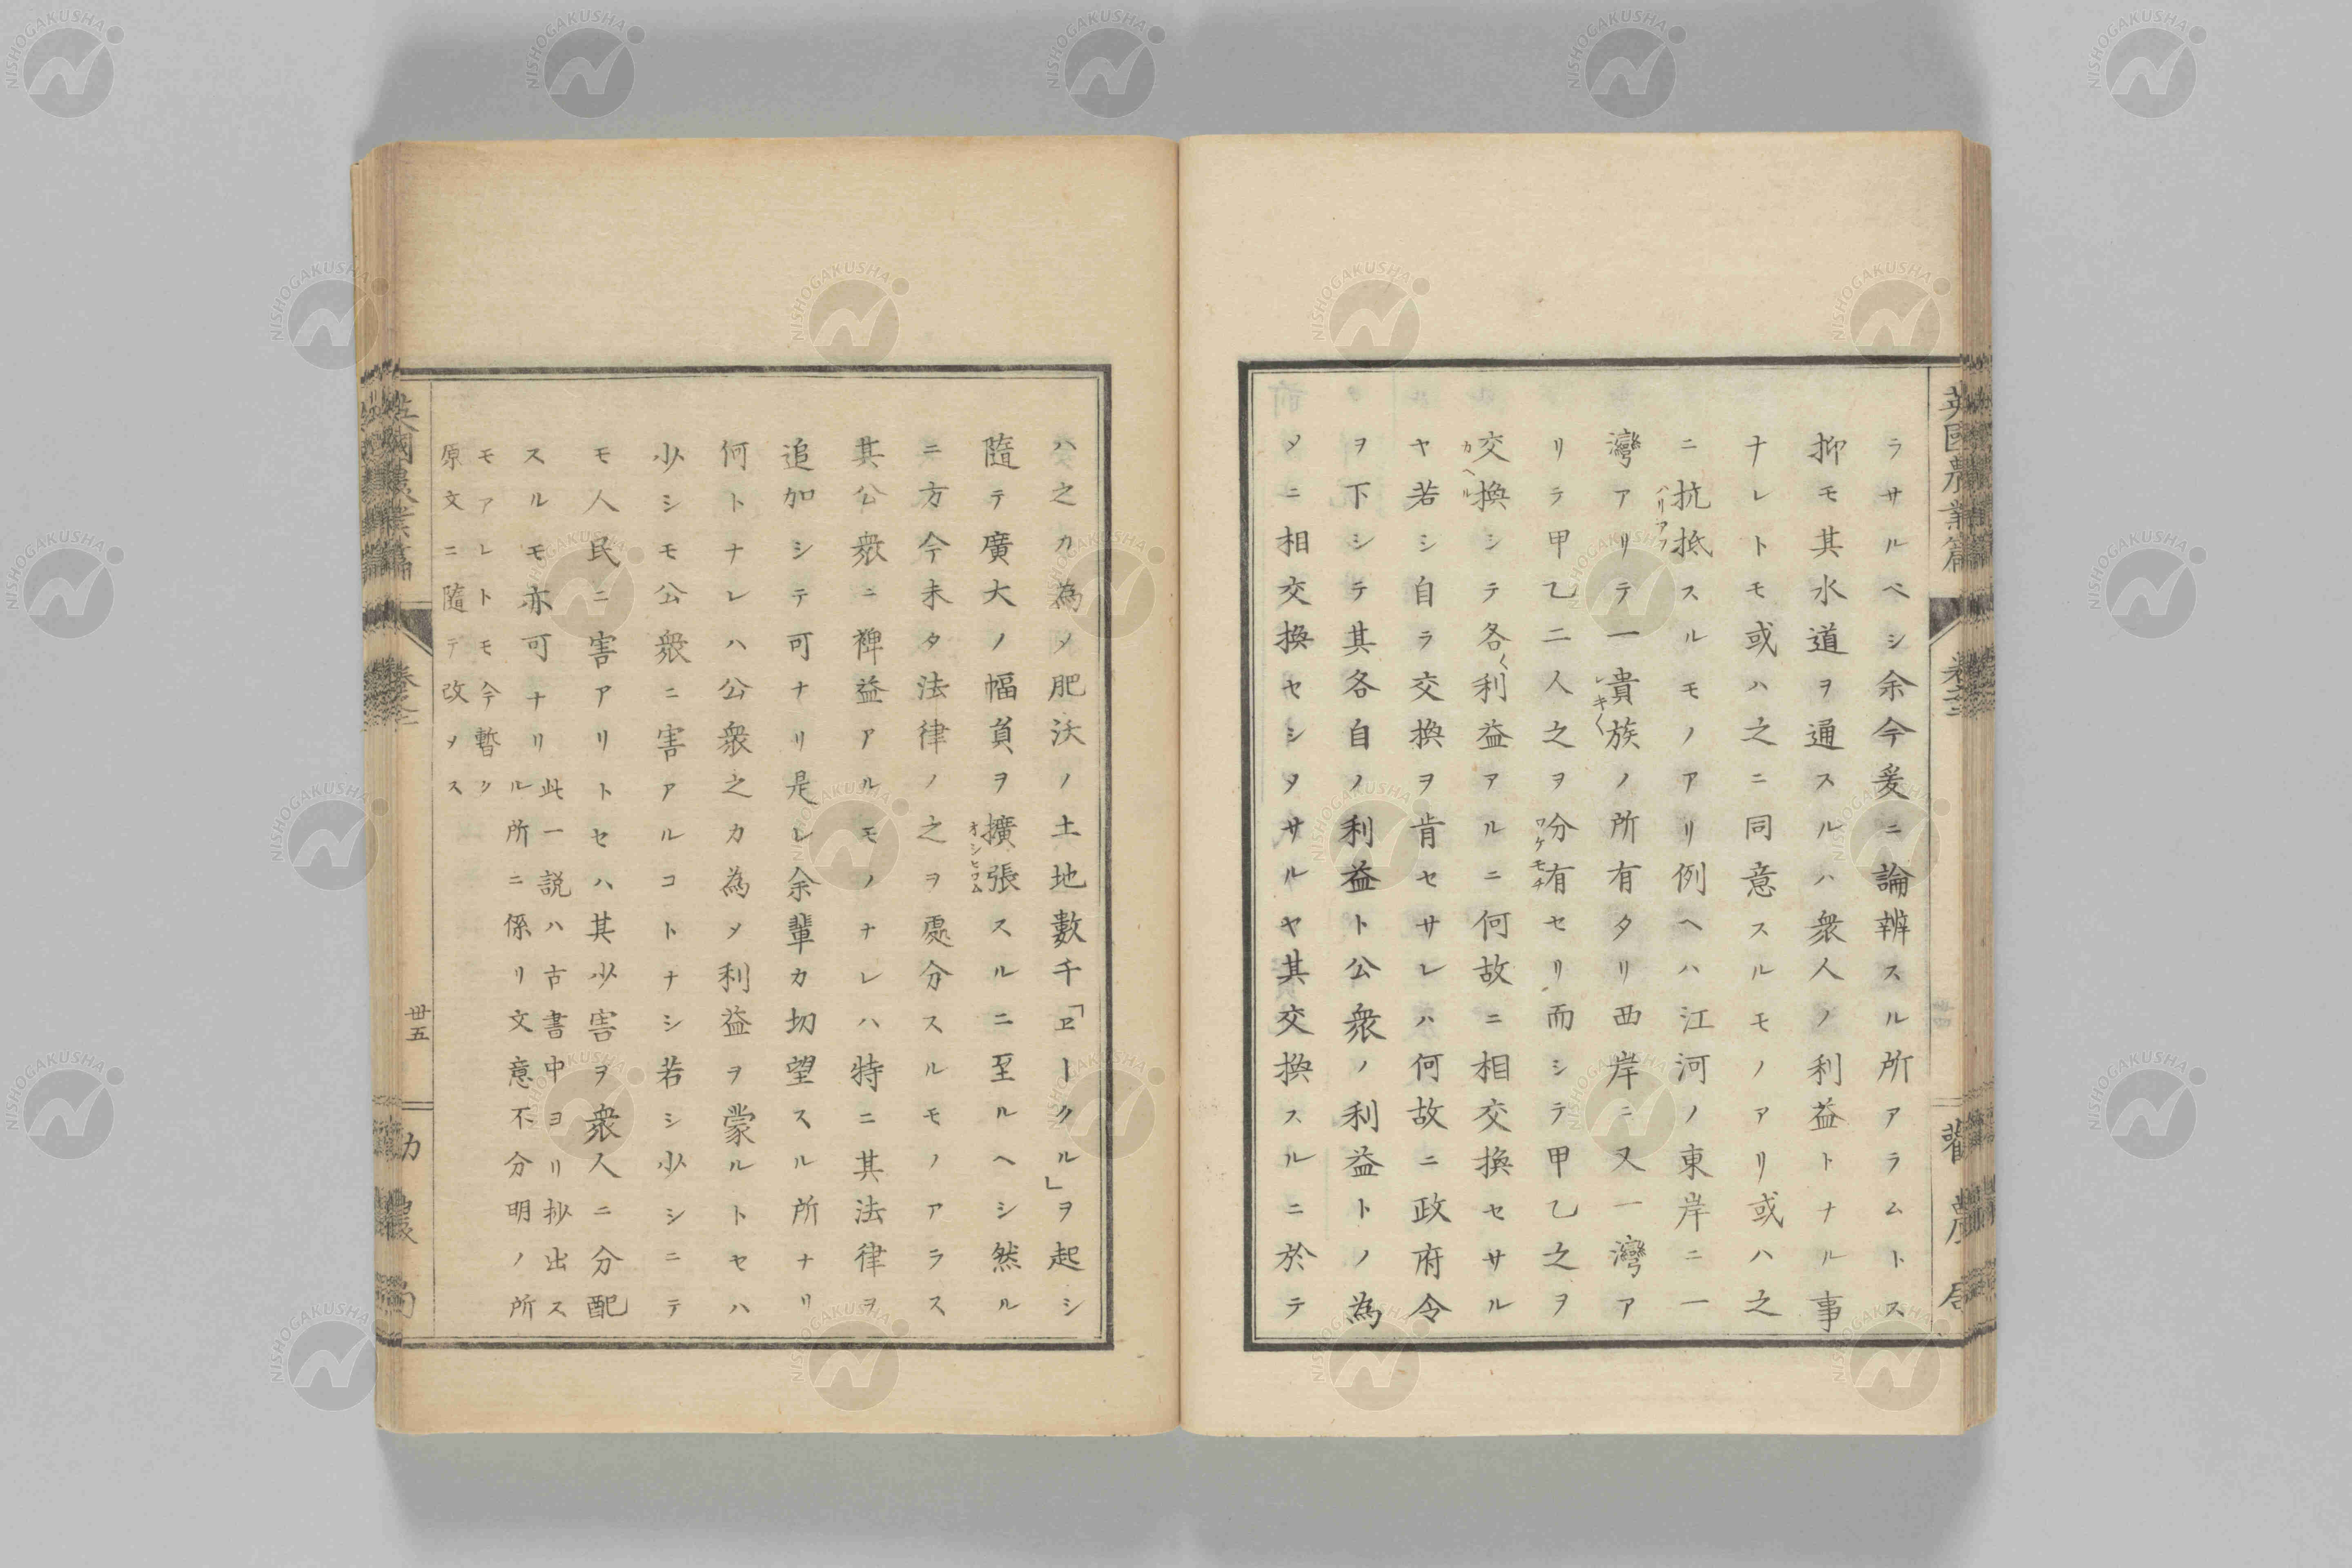 ラサルベシ余今爰ニ論辨スル所アラムトス
抑モ其水道ヲ通スルハ衆人ノ利益トナル事
ナレトモ或ハ之ニ同意スルモノアリ或ハ之
ニ抗抵スルモノアリ例ヘハ江河ノ東岸ニ一
ハリアフ
灣アリテ一貴族ノ所有タリ西岸ニ又一灣ア
レキ〱
リテ甲乙二人之ヲ分有セリ而シテ甲乙之ヲ
ワケモチ
交換シテ各〱利益アルニ何故ニ相交換セサル
カヘル
ヤ若シ自ラ交換ヲ肯セサレハ何故ニ政府令
ヲ下シテ其各自ノ利益ト公衆ノ利益トノ為
メニ相交換セシメサルヤ其交換スルニ於テ
ハ之カ為メ肥沃ノ土地數千「ヱークル」ヲ起シ
隨テ廣大ノ幅員ヲ擴張スルニ至ルヘシ然ル
オシヒロム
ニ方今未タ法律ノ之ヲ處分スルモノアラス
其公衆ニ裨益アルモノナレハ特ニ其法律ヲ
追加シテ可ナリ是レ余輩カ切望スル所ナリ
何トナレハ公衆之カ為メ利益ヲ蒙ルトセハ
少シモ公衆ニ害アルコトナシ若シ少シニテ
モ人民ニ害アリトセハ其少害ヲ衆人ニ分配
スルモ亦可ナリ
此一説ハ古書中ヨリ抄出ス
ル所ニ係リ文意不分明ノ所
モアレトモ今暫ク
原文ニ隨テ改メス
英國農業篇
卷之二
卅五
勸農局